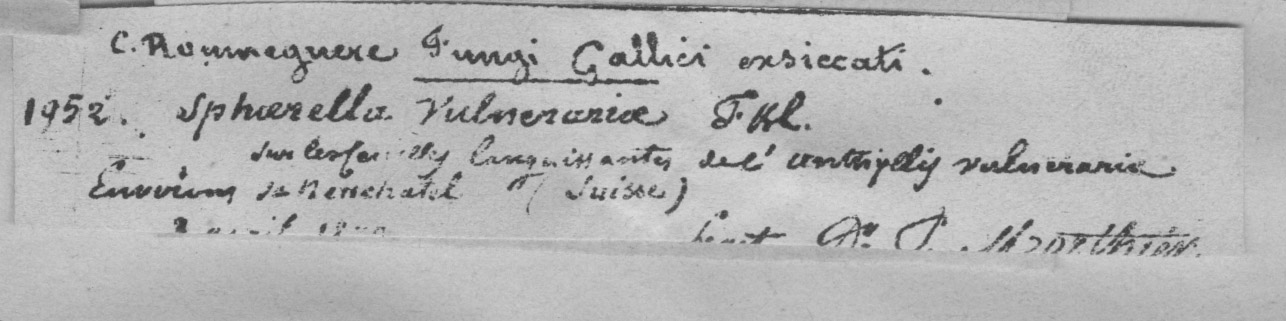 C. Roumeguere Fungi Gallici exsiccati.
1952. Sphaerella Vulnerariæ Fkl.
sur les feuilles languissantes de l' anthyllis vulneraria
Environs de Neuchatel (Suisse)
avril Dr. P. Morthier.